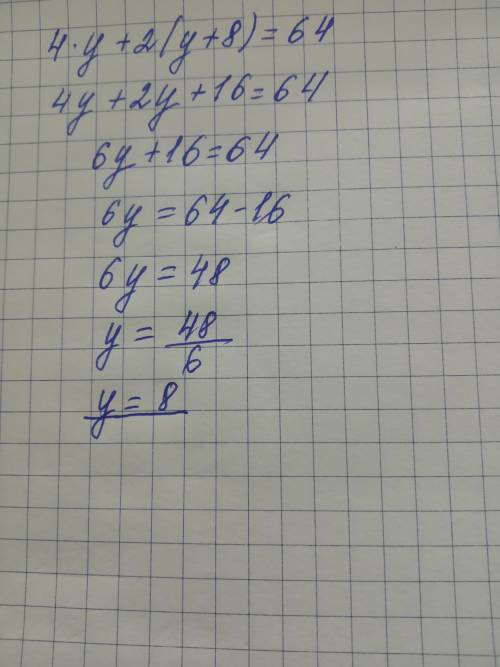 4·y+2(y+8)=64
4y+2y+16=64
6y+16=64
6y=64-16
6y=48
y=48/6
y=8